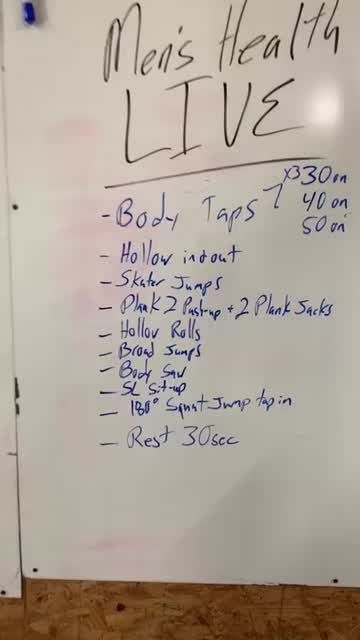 Men's Health
LIVE
- Body Taps x3 30 on
40 on
50 on
- Hollow in out
- Skater Jumps
- Plank 2 Push-up + 2 Plank Jacks
- Hollow Rolls
- Broad Jumps
- Body Saw
- SL Sit-up
- 180° Squat Jump tap in
- Rest 30sec